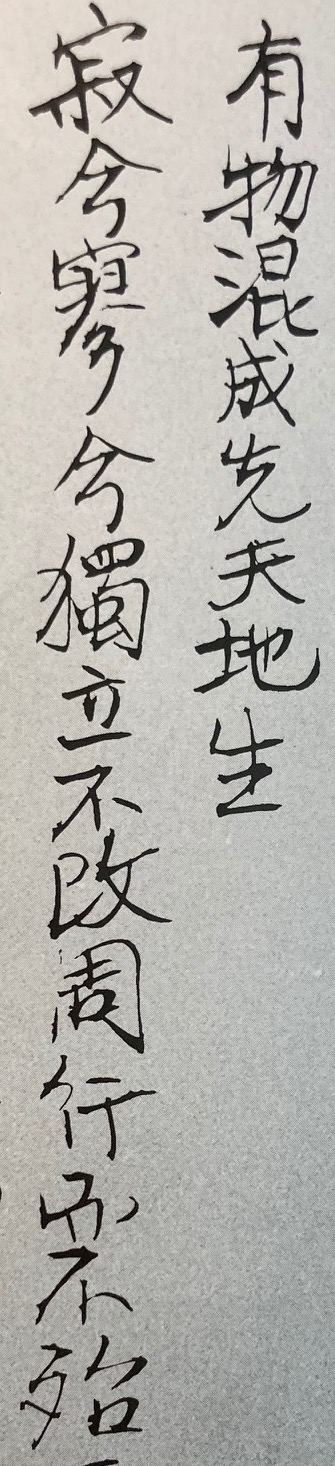 有物混成先天地生
寂兮寥兮獨立不改周行而不殆